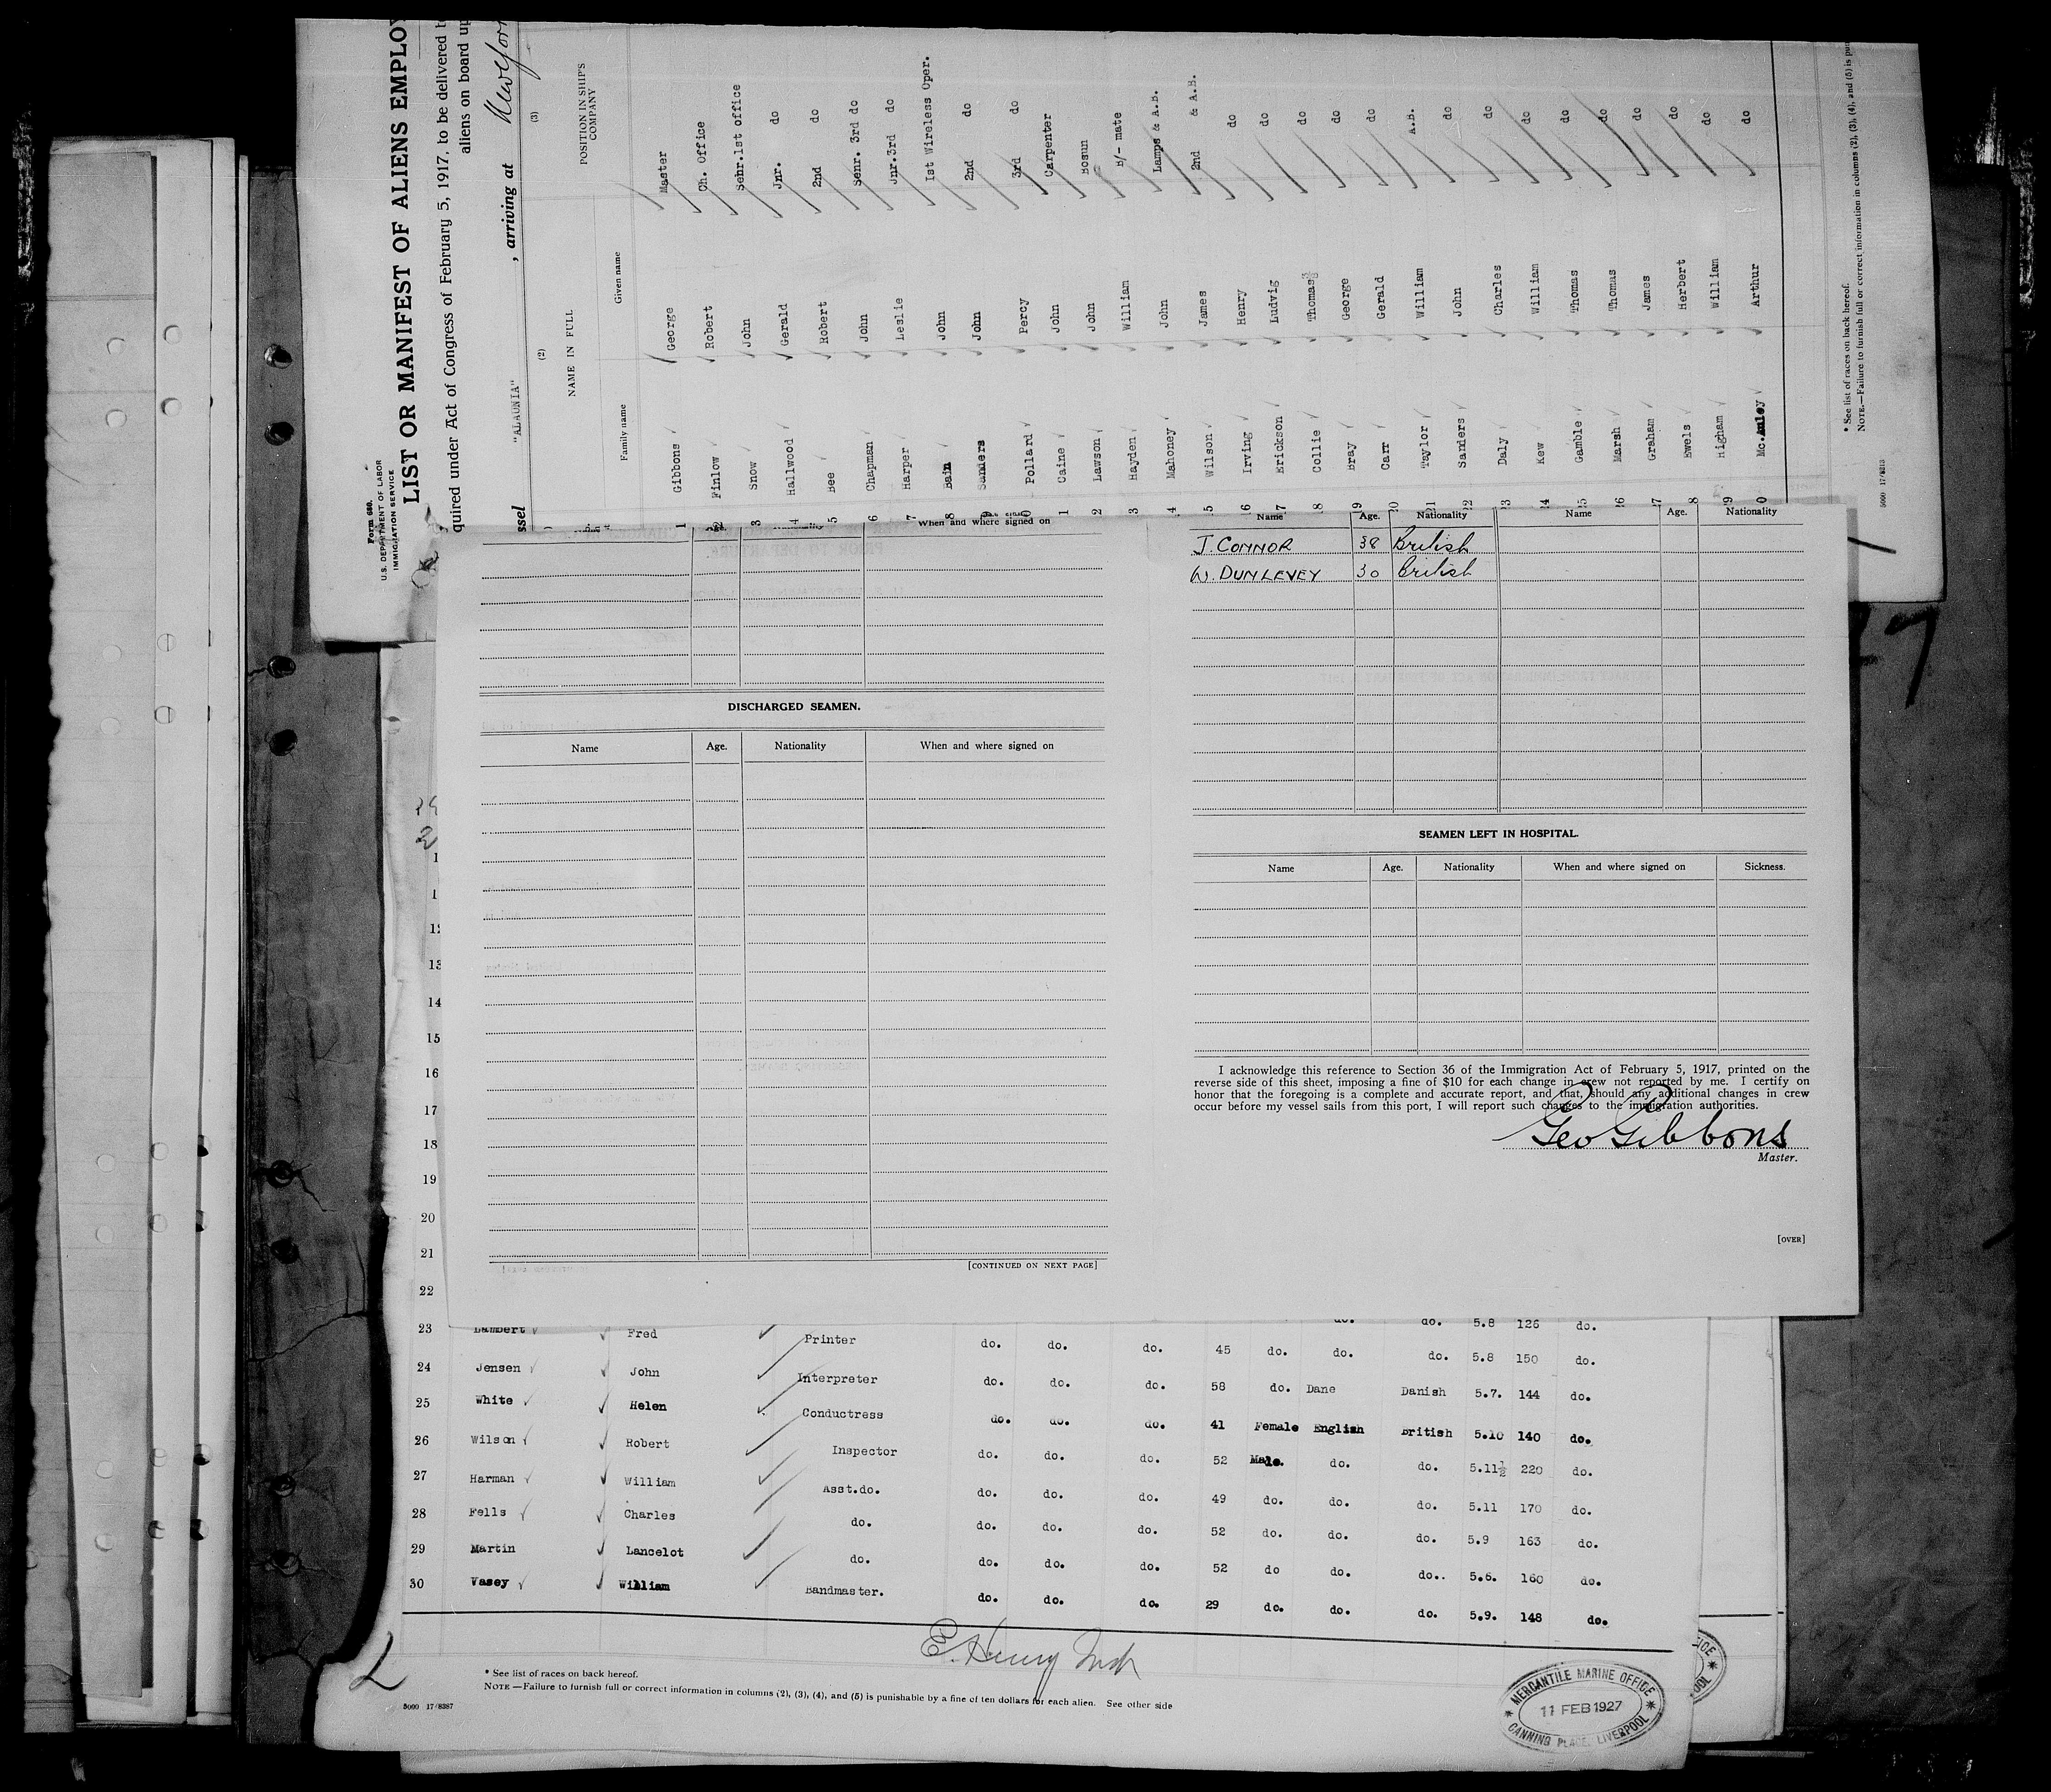 Form 680.
U.S. DEPARTMENT OF LABOR
IMMIGRATION SERVICE
LIST OR MANIFEST OF ALIENS EMPLOY
quired under Act of Congress of February 5, 1917, to be delivered t
aliens on board up
ssel "ALAUNIA" , arriving at New York
(2) (3)
NAME IN FULL POSITION IN SHIP'S COMPANY
Family name Given name
1 Gibbons George Master
2 Finlow Robert Ch. Office
3 Snow John Senr.1st Office
4 Hallwood Gerald Jnr. do
5 Bee Robert 2nd do
6 Chapman John Senr. 3rd do
7 Harper Leslie Jnr.3rd do
8 Bain John 1st Wireless Oper.
9 Sanders John 2nd do
0 Pollard Percy 3rd do
1 Caine John Carpenter
2 Lawson John Bosun
3 Hayden William B/- mate
4 Mahoney John Lamps & A.B.
5 Wilson James 2nd & A.B.
16 Irving Henry do
17 Erickson Ludvig do
18 Collie Thomas do
19 Bray George do
20 Carr Gerald do
21 Taylor William A.B.
22 Sanders John do
23 Daly Charles do
24 Kew William do
25 Gamble Thomas do
26 Marsh Thomas do
27 Graham James do
8 Ewels Herbert do
9 Higham William do
0 Mc.Auley Arthur do
* See list of races on back hereof.
NOTE.—Failure to furnish full or correct information in columns (2), (3), (4), and (5) is pun
5000 17/8213
When and where signed on
Name Age. Nationality Name Age. Nationality
J. CONNOR 38 British
W. DUNLEVEY 30 British
DISCHARGED SEAMEN.
Name Age. Nationality When and where signed on
[CONTINUED ON NEXT PAGE]
SEAMEN LEFT IN HOSPITAL.
Name Age. Nationality When and where signed on Sickness.
I acknowledge this reference to Section 36 of the Immigration Act of February 5, 1917, printed on the
reverse side of this sheet, imposing a fine of $10 for each change in crew not reported by me. I certify on
honor that the foregoing is a complete and accurate report, and that, should any additional changes in crew
occur before my vessel sails from this port, I will report such changes to the immigration authorities.
Geo Gibbons
Master.
[OVER]
13
14
15
16
17
18
19
20
21
22
do. do. 5.8 126 do.
23 Lambert Fred Printer do. do. do. 45 do. do. do. 5.8 150 do.
24 Jensen John Interpreter do. do. do. 58 do. Dane Danish 5.7. 144 do.
25 White Helen Conductress do. do. do. 41 Female English British 5.10 140 do.
26 Wilson Robert Inspector do. do. do. 52 Male. do. do. 5.11½ 220 do.
27 Harman William Asst.do. do. do. do. 49 do. do. do. 5.11 170 do.
28 Fells Charles do. do. do. do. 52 do. do. do. 5.9 163 do.
29 Martin Lancelot do. do. do. do. 52 do do. do.. 5.6. 160 do.
30 Vasey William Bandmaster. do. do. do. 29 do. do. do. 5.9. 148 do.
* See list of races on back hereof.
NOTE —Failure to furnish full or correct information in columns (2), (3), (4), and (5) is punishable by a fine of ten dollars for each alien. See other side
5000 17/8387
MERCANTILE MARINE OFFICE
11 FEB 1927
CANNING PLACE, LIVERPOOL